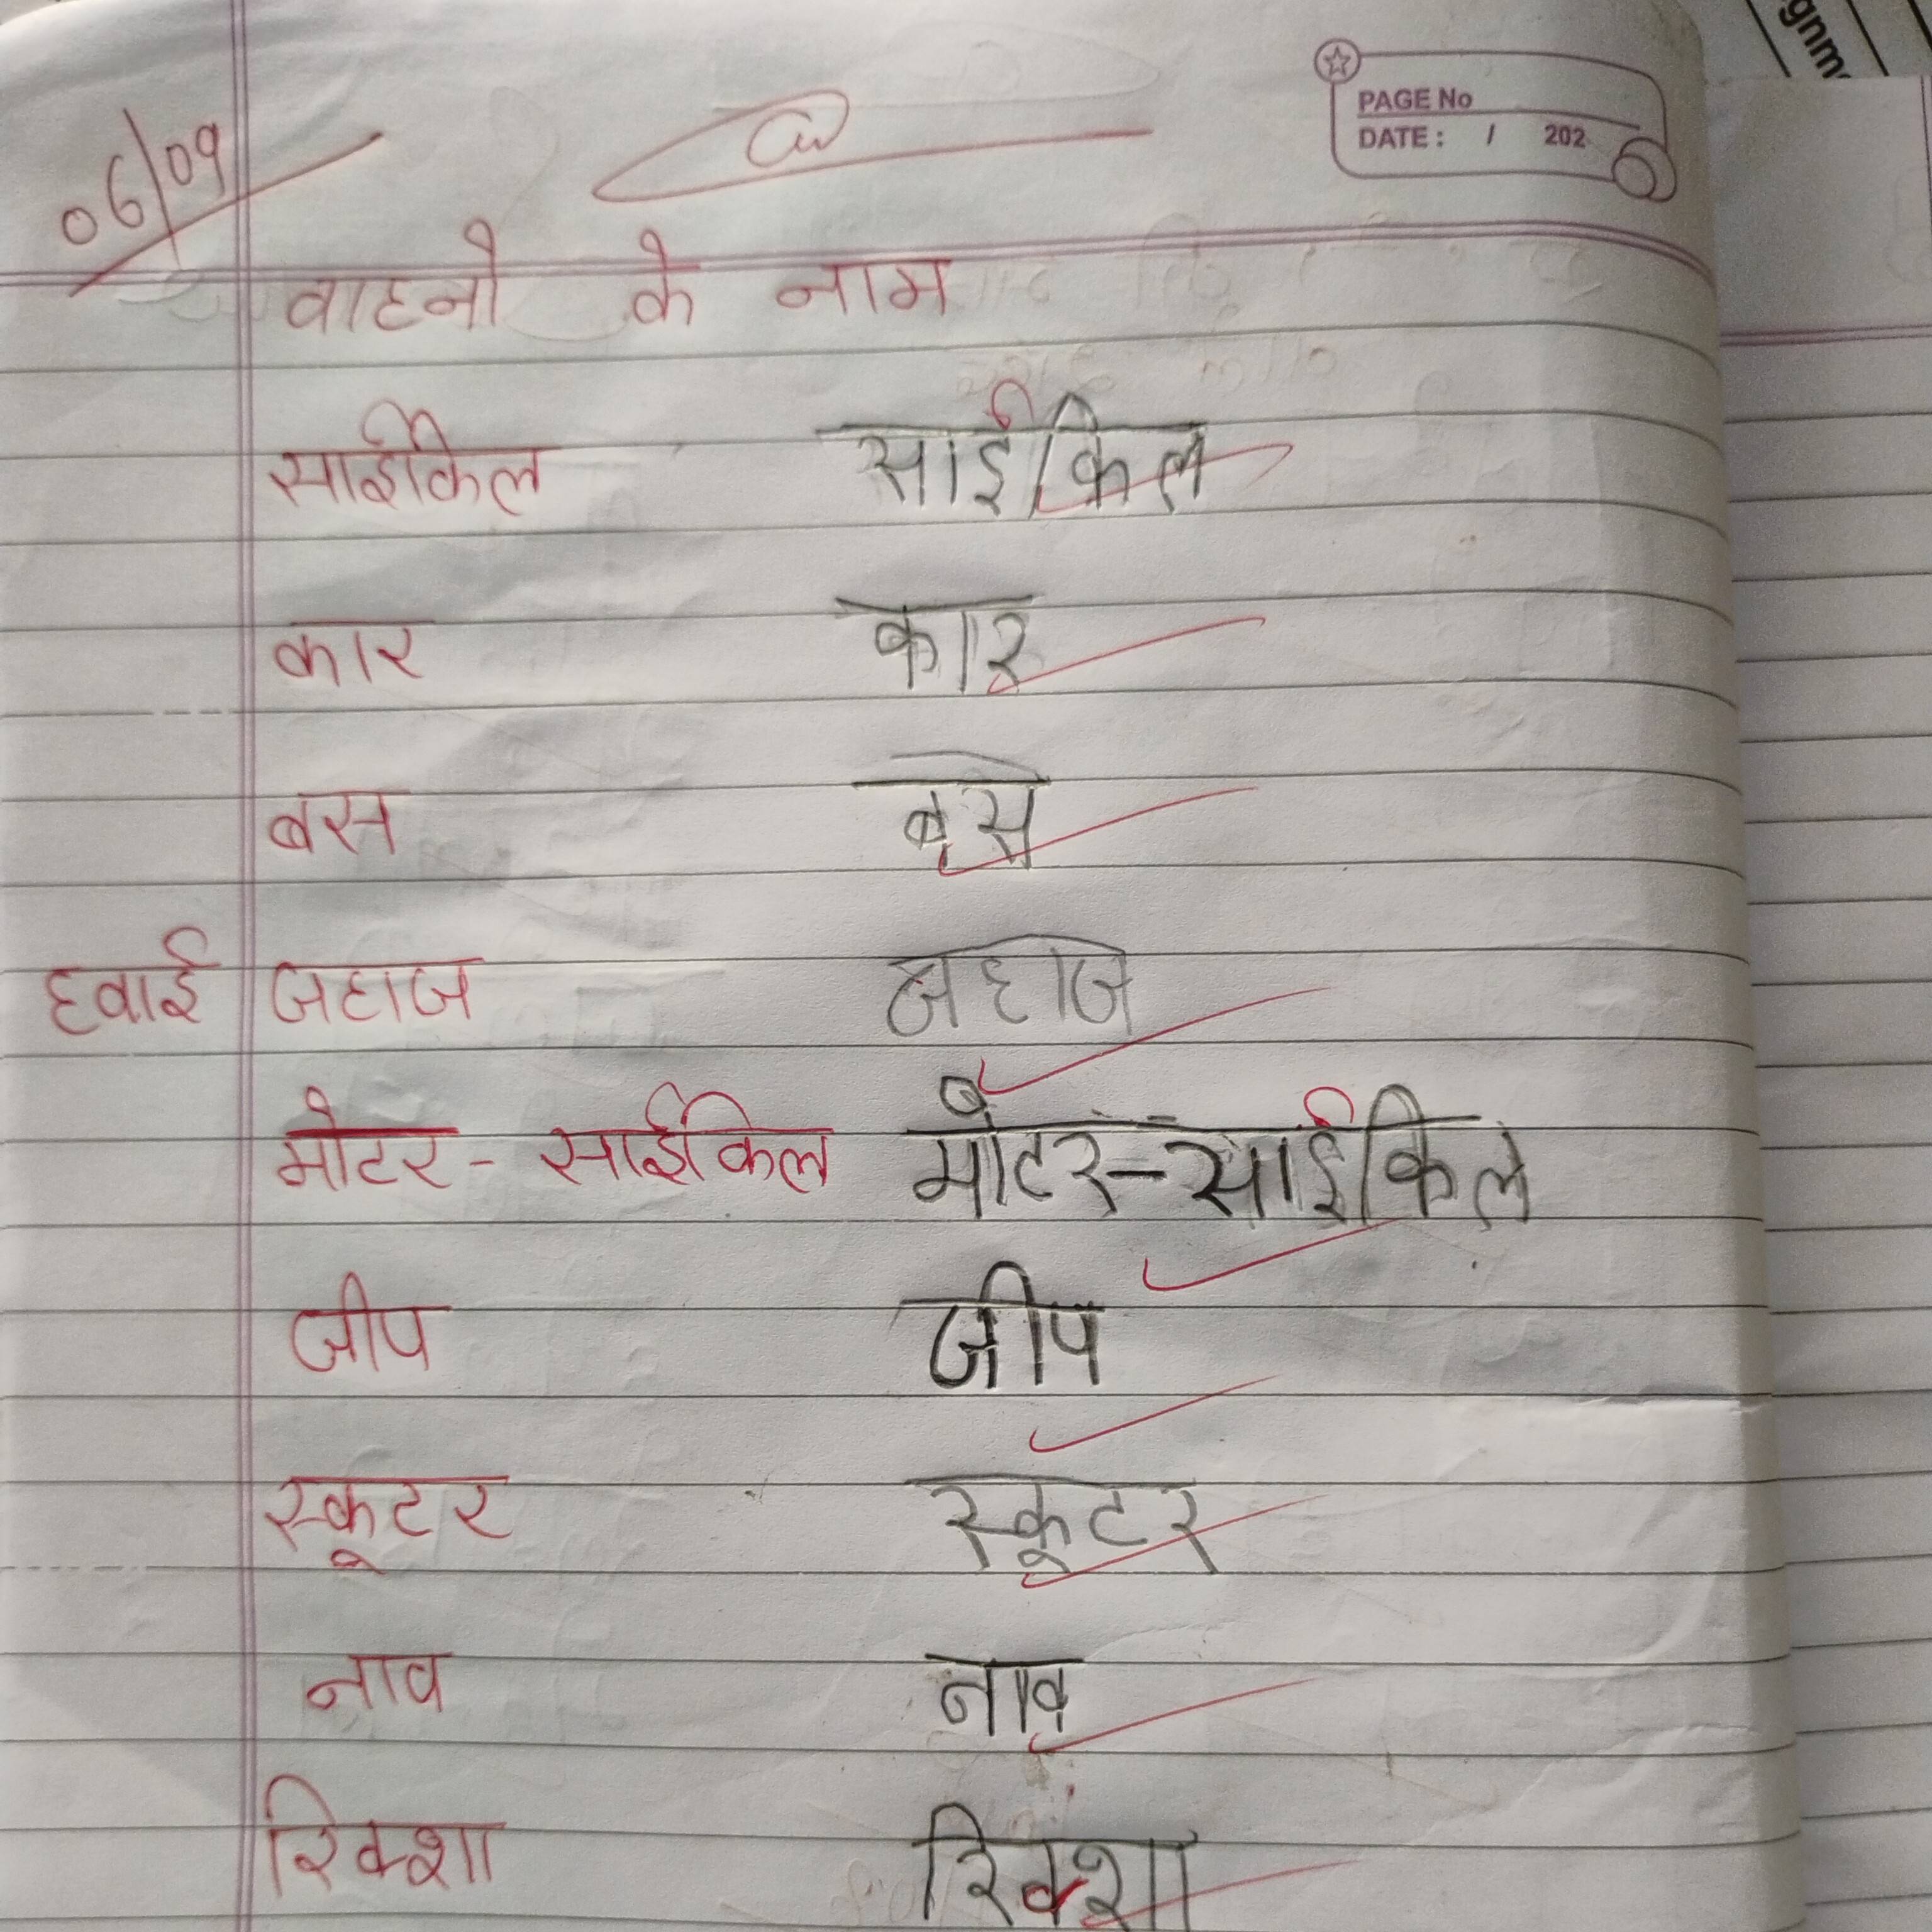 gnm
PAGE No
DATE : / 202
06/09
वाहनो के नाम
साईकिल साईकिल
कार कार
बस बस
हवाई जहाज जहाज
मोटर - साईकिल मोटर-साईकिल
जीप जीप
स्कूटर स्कूटर
नाव नाव
रिक्शा रिक्शा